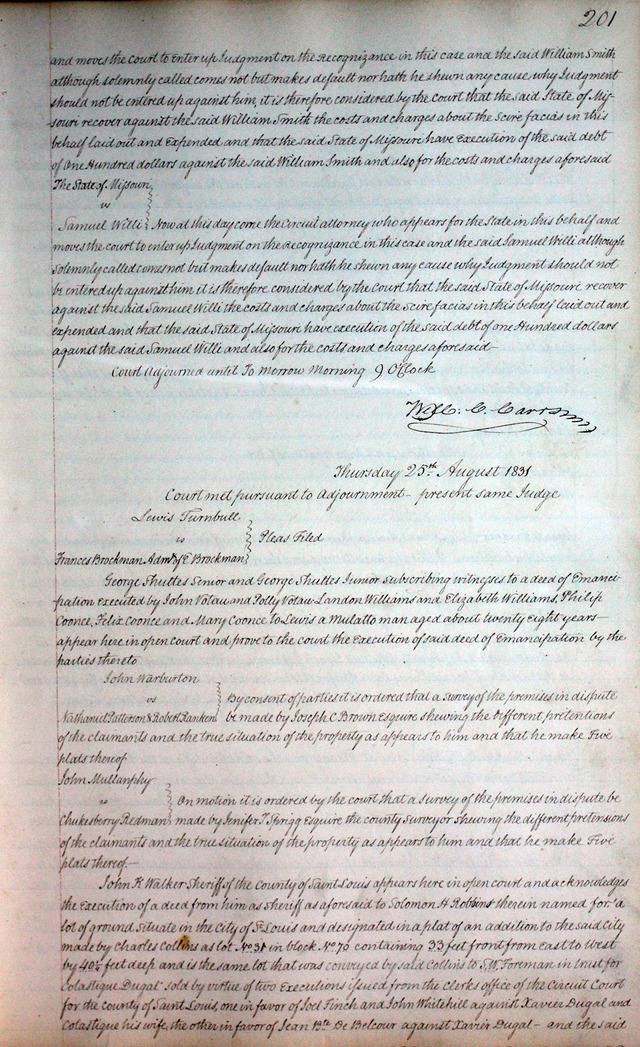 201
and moves the court to enter up Judgment on the Recognizance in this case and the said William Smith
although solemnly called comes not but makes default nor hath he shewn any cause why Judgment
should not be entered up against him, it is therefore considered by the court that the said State of Mis-
souri recover against the said William Smith the costs and charges about the Scire facias in this
behalf laid out and Expended and that the said State of Missouri have Execution of the said debt
of One Hundred dollars against the said William Smith and also for the costs and charges aforesaid
The State of Missouri
vs
Samuel Willi Now at this day come the Circuit attorney who appears for the State in this behalf and
moves the court to enter up Judgment on the Recognizance in this case and the said Samuel Willi although
Solemnly called comes not but makes default nor hath he shewn any cause why Judgment should not
be entered up against him it is therefore considered by the Court that the said State of Missouri recover
against the said Samuel Willi the costs and charges about the Scire facias in this behalf laid out and
expended and that the said State of Missouri have execution of the said debt of one Hundred dollars
against the said Samuel Willi and also for the costs and charges aforesaid—
Court Adjourned until To Morrow Morning 9 OClock
Wm. C. Carr
Thursday 25th August 1831
Court met pursuant to Adjournment – present same Judge
Lewis Turnbull
vs Pleas Filed
Frances Brockman Admr of E Brockman
George Shultes Senior and George Shultes Junior Subscribing witnesses to a deed of Emanci-
pation executed by John Votaw and Polly Votaw Landon Williams and Elizabeth Williams, Philip
Coonce, Felix Coonce and Mary Coonce to Lewis a Mulatto man aged about twenty Eight years—
appear here in open court and prove to the court the Execution of said deed of Emancipation by the
parties thereto
John Warburton
vs By consent of parties it is ordered that a Survey of the premises in dispute
Nathaniel Patterson & Robert Ranken be made by Joseph C Brown Esquire shewing the Different pretentions
of the claimants and the true situation of the property as appears to him and that he make Five
plats thereof
John Mullanphy
vs On motion it is ordered by the court that a Survey of the premises in dispute be
Chukesberry Redman made by Jenifer T Sprigg Esquire the county Surveyor shewing the different pretensions
of the claimants and the true situation of the property as appears to him and that he make Five
plats thereof—
John K Walker Sheriff of the County of Saint Louis appears here in open court and acknowledges
the Execution of a deed from him as Sheriff as aforesaid to Solomon H Robbins therein named for a
lot of ground Situate in the City of St Louis and designated in a plat of an addition to the said city
made by Charles Collins as lot No 31 in block No 70 containing 33 feet front from East to West
by 40½ feet deep and is the same lot that was conveyed by said Collins to S.W. Foreman in trust for
Colastique Dugal Sold by virtue of two Executions issued from the clerks office of the Circuit Court
for the county of Saint Louis, one in favor of Joel Finch and John Whitehill against Xavier Dugal and
Colastique his wife, the other in favor of Jean Bte De Belcour against Xavier Dugal – and the said